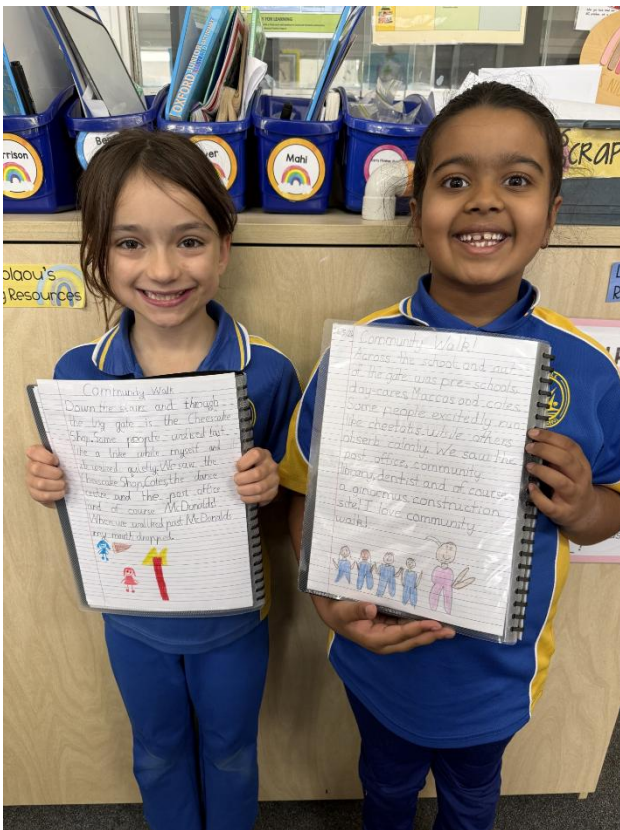 OXFORD
JUNIOR
FOR LEARNING
Mahl
CRAP
Resources
Community Walk
Down the stairs and through
the big gate is the Cheescake
Shop. Some people walked fast
like a while myself and
quietly. We saw the
Cheescake Shop, Coles, the dance
centre and the post office
and of course McDonalds!
When we walked past McDonalds
my mouth dropped.
Community Walk!
Across the school and out
of the gate was pre-schools,
day-cares, Maccas and coles.
Some people excitedly run
like cheetahs while others
absorb calmly. We saw the
post office, community
library, dentist and of course
a ginormous construction
site! I love community
walk!